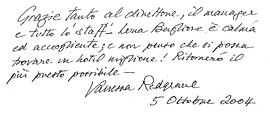 Grazie tanto al direttore, il manager
e tutto lo staff – Lena Burglione è calma
ed accogliente, e non penso che si possa
trovare in hotel migliore! Ritornerò il
più presto possibile —
Vanessa Redgrave
5 Ottobre 2004